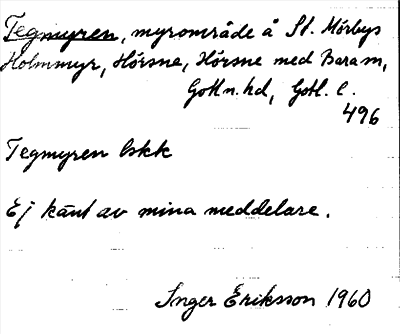 Tegmyren, myrområde å St. Mörbys
Holmmyr, Hörsne, Hörsne med Bara sn,
Gotl n. hd, Gotl. l.
496
Tegmyren bskk
Ej känt av mina meddelare.
Inger Eriksson 1960